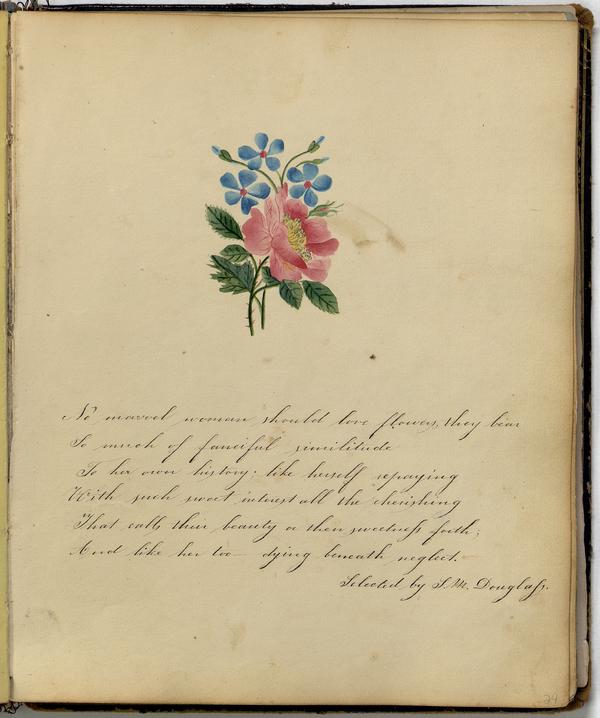 No marvel woman should love flowers, they bear
So much of fanciful similitude
To her own history; like herself repaying
With such sweet interest all the cherishing
That calls their beauty or their sweetness forth;
And like her too – dying beneath neglect.
Selected by S. M. Douglass.
24